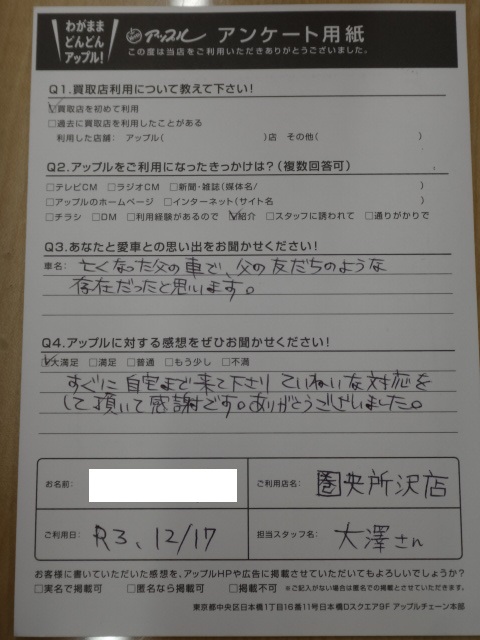 わがまま
どんどん
アップル!
アップル アンケート用紙
この度は当店をご利用いただきありがとうございました。
Q1.買取店利用について教えて下さい!
☑買取店を初めて利用
□過去に買取店を利用したことがある
利用した店舗: アップル( )店 その他( )
Q2.アップルをご利用になったきっかけは?(複数回答可)
□テレビCM □ラジオCM □新聞・雑誌(媒体名/ )
□アップルのホームページ □インターネット(サイト名 )
□チラシ □DM □利用経験があるので ☑紹介 □スタッフに誘われて □通りがかりで
Q3.あなたと愛車との思い出をお聞かせください!
車名: 亡くなった父の車で、父の友だちのような
存在だったと思います。
Q4.アップルに対する感想をぜひお聞かせください!
☑大満足 □満足 □普通 □もう少し □不満
すぐに自宅まで来て下さりていねいな対応を
して頂いて感謝です。ありがとうございました。
お名前:
ご利用店名: 圏央所沢店
ご利用日: R3、12/17
担当スタッフ名: 大澤さん
お客様に書いていただいた感想を、アップルHPや広告に掲載させていただいてもよろしいでしょうか?
□実名で掲載可 □匿名なら掲載可 □掲載不可 ※ご記入がない場合は匿名での掲載とさせていただきます。
東京都中央区日本橋1丁目16番11号日本橋Dスクエア9F アップルチェーン本部